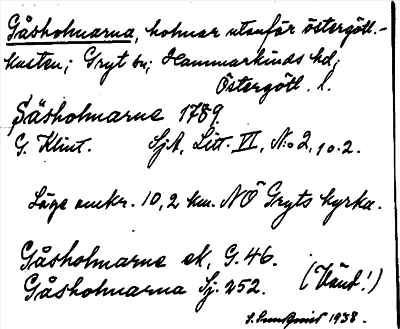 Gåsholmarna, holmar utanför östergötl.-
kusten; Gryt sn; Hammarkinds hd;
Östergötl. l.
Gåsholmarne 1789.
G. Klint. SjA, Litt. VI, N:o 2, 10.2.
Läge omkr. 10,2 km. NÖ Gryts kyrka.
Gåsholmarne ek, G. 46.
Gåsholmarna Sj. 252. (Vänd!)
1938.